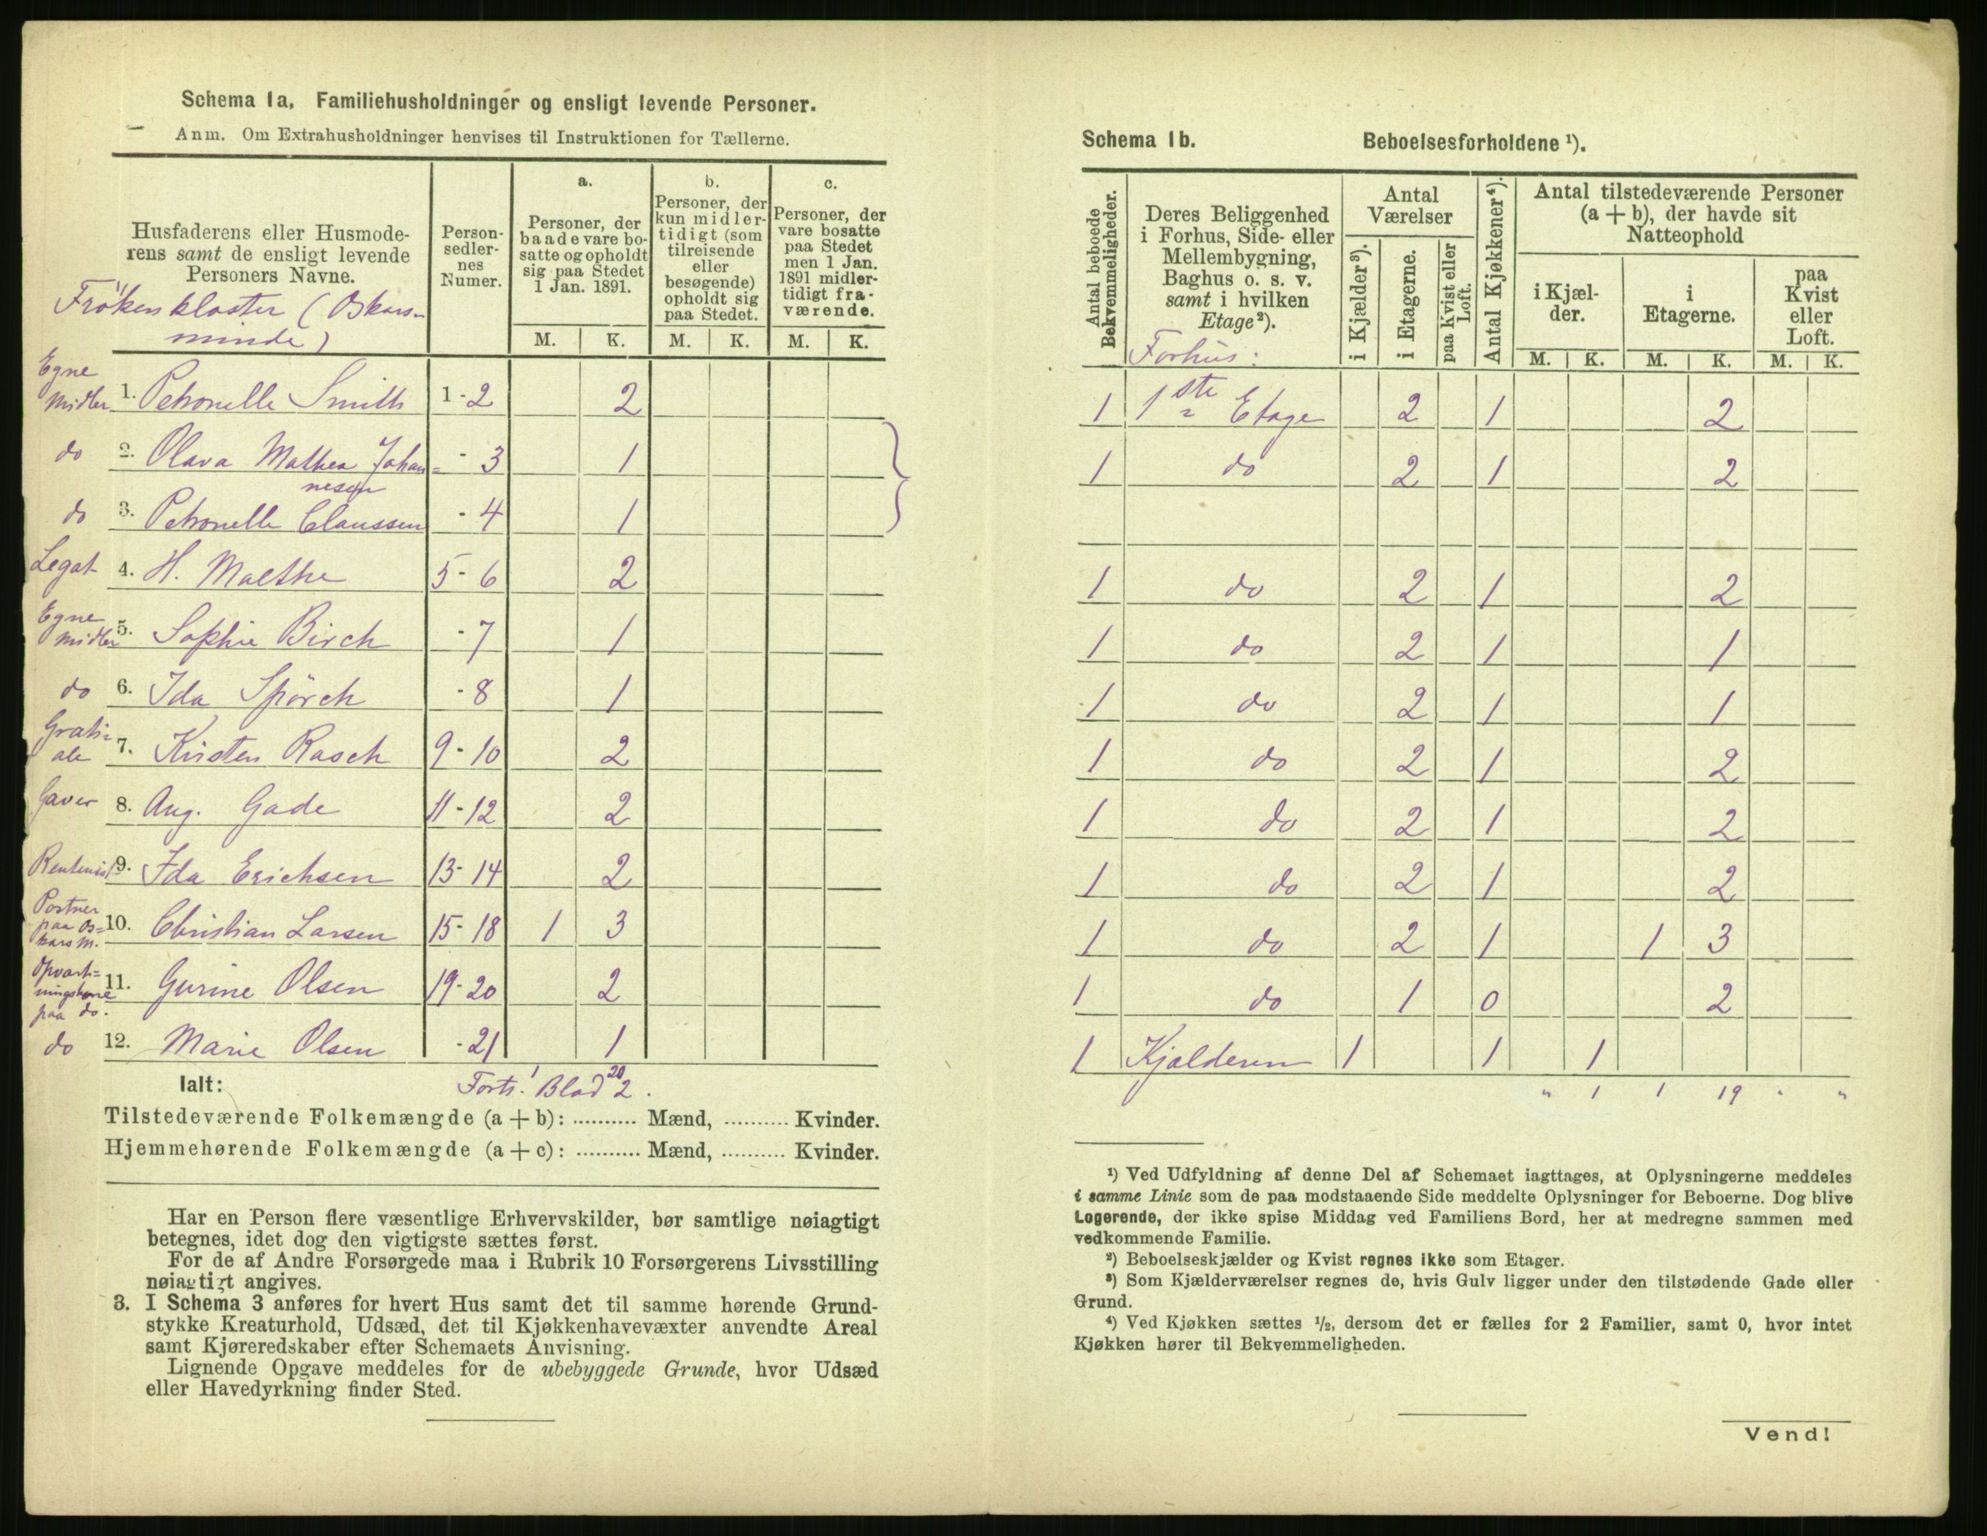 Schema 1a. Familiehusholdninger og ensligt levende Personer.
Anm. Om Extrahusholdninger henvises til Instruktionen for Tællerne.
Husfaderens eller Husmoderens samt de ensligt levende Personers Navne.
Frökenkloster (Oskars-
minde)
Person-
sedler-
nes
Numer.
a.
Personer, der
baade vare bo-
satte og opholdt
sig paa Stedet
1 Jan. 1891.
b.
Personer, der
kun midler-
tidigt (som
tilreisende
eller
besøgende)
opholdt sig
paa Stedet.
c.
Personer, der
vare bosatte
paa Stedet
men 1 Jan.
1891 midler-
tidigt fra-
værende.
M. K. M. K. M. K.
Egne Midler 1. Petronelle Smith 1-2 2
do 2. Olava Mathea Johan= - 3 1
nesen
do 3. Petronelle Claussen - 4 1
Legat 4. H. Malthe 5-6 2
Egne Midler 5. Sophie Birch - 7 1
do 6. Ida Spörck - 8 1
Grati=
ale 7. Kirsten Rasch 9-10 2
Gaver 8. Aug. Gade 11-12 2
Rentenist 9. Ida Erichsen 13-14 2
Portner
paa Os=
kars M. 10. Christian Larsen 15-18 1 3
Opvart=
ningskone
paa do. 11. Gurine Olsen 19-20 2
do 12. Marie Olsen - 21 1
Ialt: 1 20
Forts. Blad 2.
Tilstedeværende Folkemængde (a + b): .......... Mænd, .......... Kvinder.
Hjemmehørende Folkemængde (a + c): .......... Mænd, .......... Kvinder.
Har en Person flere væsentlige Erhvervskilder, bør samtlige nøiagtigt
betegnes, idet dog den vigtigste sættes først.
For de af Andre Forsørgede maa i Rubrik 10 Forsørgerens Livsstilling
nøiagtigt angives.
3. I Schema 3 anføres for hvert Hus samt det til samme hørende Grund-
stykke Kreaturhold, Udsæd, det til Kjøkkenhavevæxter anvendte Areal
samt Kjøreredskaber efter Schemaets Anvisning.
Lignende Opgave meddeles for de ubebyggede Grunde, hvor Udsæd
eller Havedyrkning finder Sted.
Schema 1b. Beboelsesforholdene ¹).
Antal beboede
Bekvemmeligheder.
Deres Beliggenhed
i Forhus, Side- eller
Mellembygning,
Baghus o. s. v.
samt i hvilken
Etage²).
Forhus:
Antal
Værelser
i Kjælder³).
i Etagerne.
paa Kvist eller
Loft.
Antal Kjøkkener⁴).
Antal tilstedeværende Personer
(a + b), der havde sit
Natteophold
i Kjæl-
der.
i
Etagerne.
paa
Kvist
eller
Loft.
M. K. M. K. M. K.
1 1ste Etage 2 1 2
1 do 2 1 2
1 do 2 1 2
1 do 2 1 1
1 do 2 1 1
1 do 2 1 2
1 do 2 1 2
1 do 2 1 2
1 do 2 1 1 3
1 do 1 0 2
1 Kjælderen 1 1 1
" 1 1 19 " "
¹) Ved Udfyldning af denne Del af Schemaet iagttages, at Oplysningerne meddeles
i samme Linie som de paa modstaaende Side meddelte Oplysninger for Beboerne. Dog blive
Logerende, der ikke spise Middag ved Familiens Bord, her at medregne sammen med
vedkommende Familie.
²) Beboelseskjælder og Kvist regnes ikke som Etager.
³) Som Kjælderværelser regnes de, hvis Gulv ligger under den tilstødende Gade eller
Grund.
⁴) Ved Kjøkken sættes ½, dersom det er fælles for 2 Familier, samt 0, hvor intet
Kjøkken hører til Bekvemmeligheden.
Vend!